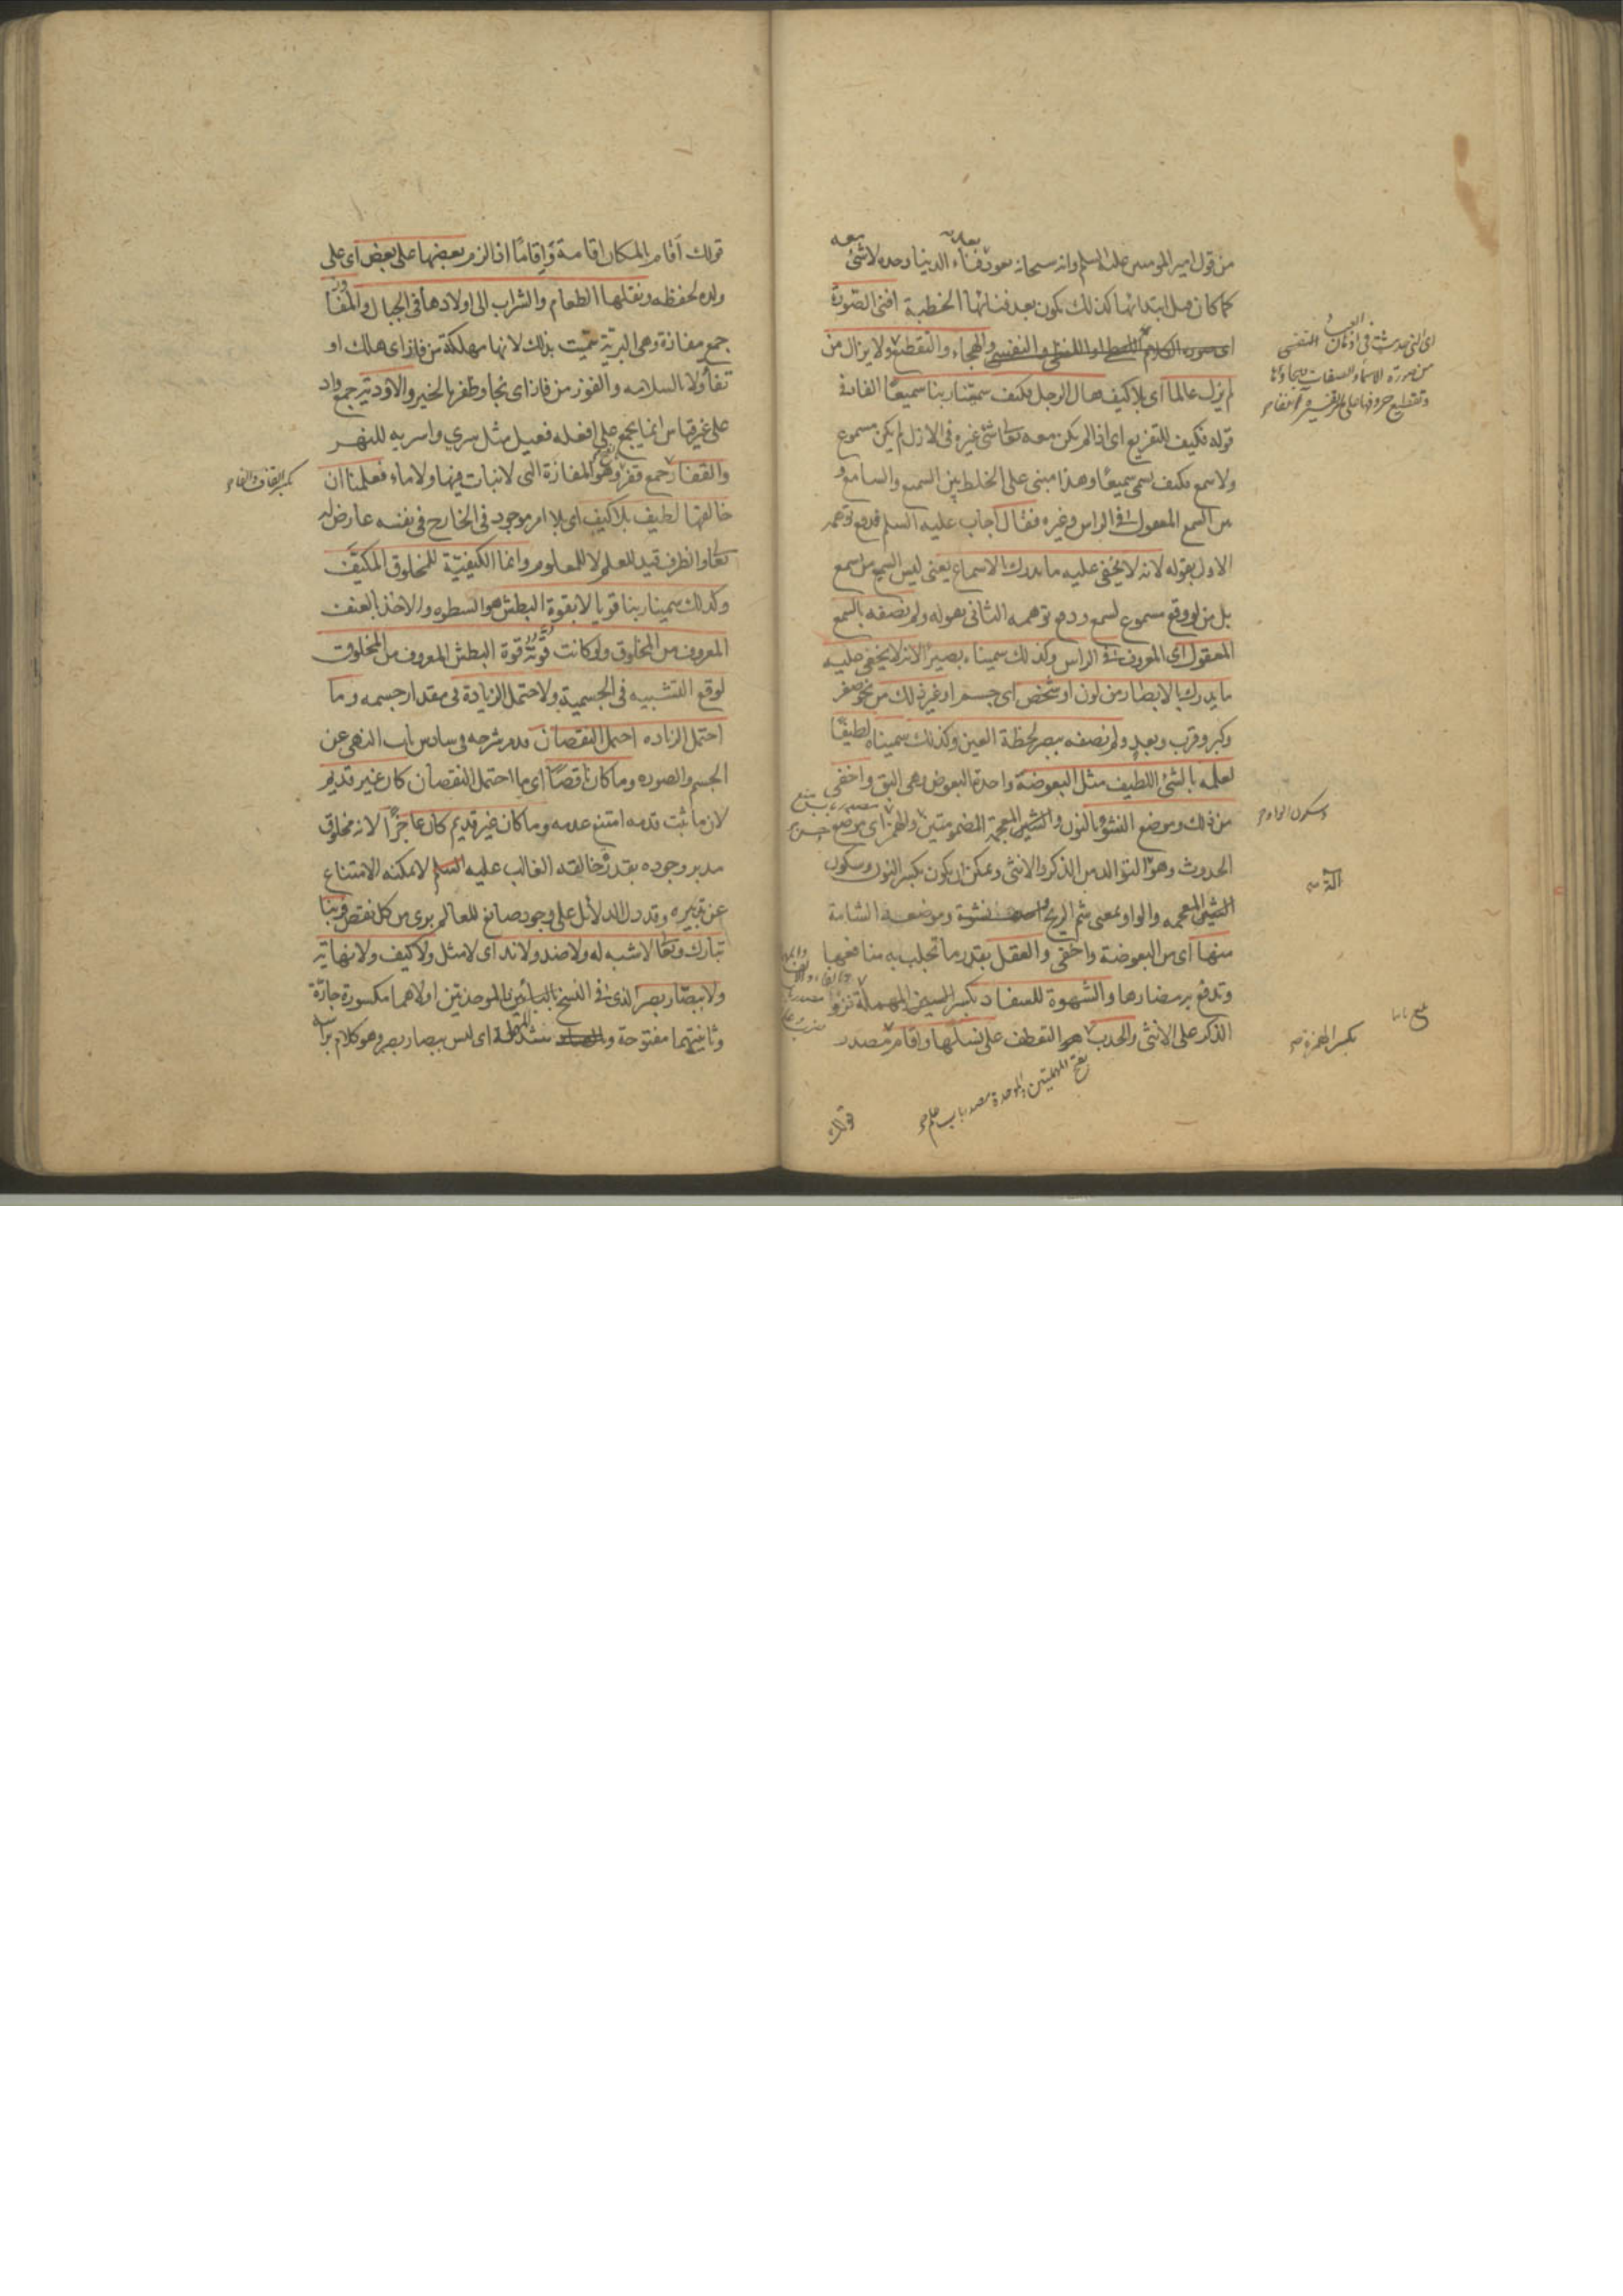 من قول امير المومنين عليه السلم وانه سبحانه يعود بعد فناء الدنيا وحده لا شئ معه
كما كان قبل ابتدائها كذلك يكون بعد فنائها الخطبة افنى الصورة
والهجاء والتقطيع ولا يزال من
لم يزل عالما اى بلا كيف فقال الرجل فكيف سمّينا ربنا سميعًا الفاء فى
قوله فكيف للتفريع اى اذا لم يكن معه تعالى شئ غيره فى الازل لم يكن مسموع
ولا سمع فكيف سمى سميعًا وهذا مبنى على الخلط بين السميع والسامع و
من السمع المعقول فى الراس وغيره فقال اجاب عليه السلم فدفع توهمه
الاول بقوله لانه لا يخفى عليه ما يدرك بالاسماع يعنى ليس السميع من سمع
بل من لو وقع مسموع لسمع ودفع توهمه الثانى بقوله ولم نصفه بالسمع
المعقول اى المعروف فى الراس وكذلك سميناه بصيرًا لانه لا يخفى عليه
ما يدرك بالابصار من لون او شخص اى جسم او غير ذلك من نحو صغر
وكبر وقرب وبعد ولم نصفه ببصر لحظة العين وكذلك سميناه لطيفًا
لعلمه بالشئ اللطيف مثل البعوضة واحدة البعوض وهى البق واخفى
من ذلك وموضع النشوء بالنون والشين المعجمة المضمومتين والهمز اى موضع
الحدوث وهو التوالد من الذكر والانثى ويمكن ان يكون بكسر النون وسكون
الشين المعجمه والواو بمعنى شم الريح نشوة وموضعه الشامة
منها اى من البعوضة واخفى والعقل بقدر ما تجلب به منافعها
وتدفع به مضارها والشهوة للسفاد بكسر السين المهملة نزو
الذكر على الانثى والحدب هو التعطف على نسلها واقام مصدر
بفتح المهملتين والموحدة مصدر باب علم
قولك
وسكون الواو
آلة
بكسر الهمزة
قولك اقام بالمكان اقامة وإقامًا اذا لزم بعضها على بعض اى على
ولده لحفظه ونقلها الطعام والشراب الى اولادها فى الجبال والمفاوز
جمع مفازة وهى البرية سميت بذلك لانها مهلكة من فاز اى هلك او
تفأولا بالسلامه والفوز من فاز اى نجا وظفر بالخير والاودية جمع واد
على غير قياس انما يجمع على افعله فعيل مثل سري واسريه للنهر
والقفار جمع قفر وهو المفازة التى لا نبات فيها ولا ماء فعلمنا ان
خالقها لطيف بلا كيف اى بلا امر موجود فى الخارج فى نفسه عارض له
تعالى والظرف قيد للعلم لا للمعلوم وانما الكيفيّة للمخلوق المكيَّف
وكذلك سمينا ربنا قويا لا بقوة البطش هو السطوه والاخذ بالعنف
المعروف من المخلوق ولو كانت قوّته قوة البطش المعروف من المخلوق
لوقع التشبيه فى الجسمية ولاحتمل الزيادة فى مقدار جسمه وما
احتمل الزياده احتمل النقصان قد مر شرحه فى سادس باب النهى عن
الجسم والصوره وما كان ناقصًا اى ما احتمل النقصان كان غير قديم
لان ما ثبت قدمه امتنع عدمه وما كان غير قديم كان عاجزًا لانه مخلوق
مدبر وجوده بقدرة خالقه الغالب عليه لا يمكنه الامتناع
عن تدبيره وقد دل الدلائل على وجود صانع للعالم برى من كل نقص فربنا
تبارك وتعالى لا شبه له ولا ضد ولا ند اى لا مثل ولا كيف ولا نهاية
ولا ببصّار بصر الذى فى النسخ بالبائين الموحدتين اولاهما مكسورة جارّة
وثانيتهما مفتوحة و اى ليس ببصار ببصر وهو كلام براسه
بكسر القاف والفاء